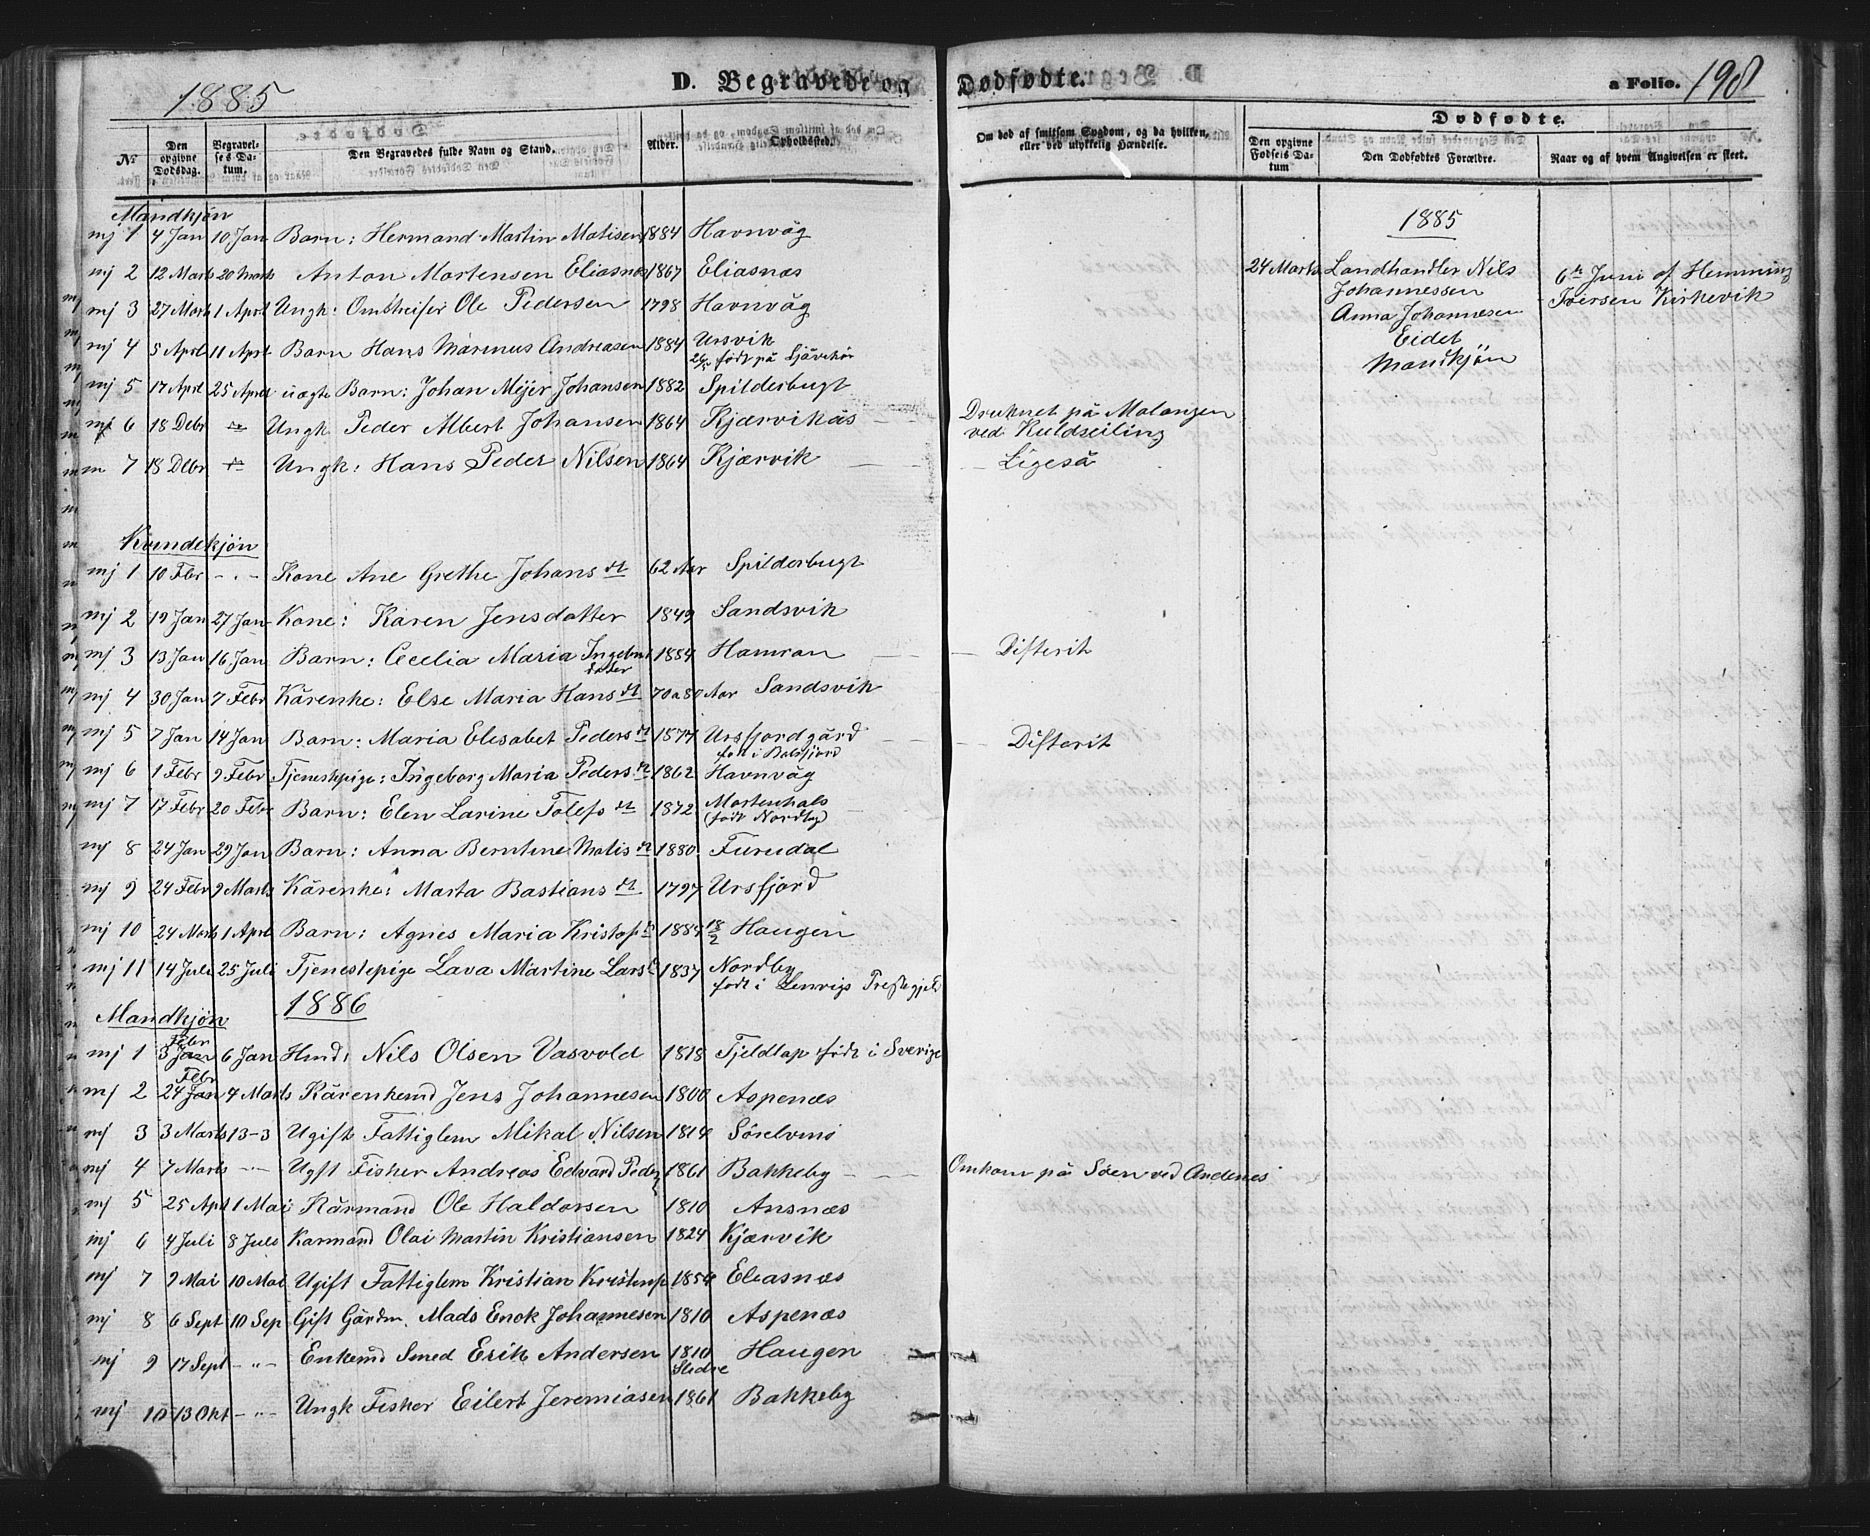 1885
D. Begravede og Dødfødte.
a Folio. 198
Nr.
Den opgivne Dødsdag.
Begravelses Datum.
Den Begravedes fulde Navn og Stand.
Alder.
Opholdssted.
Om død af smitsom Sygdom, og da hvilken, eller ved ulykkelig Hændelse.
Dødfødte.
Den opgivne Fødsels Datum
Den Dødfødtes Forældre.
Naar og af hvem Angivelsen er skeet.
Mandkjøn
mj 1 4 Jan 10 Jan Barn: Hermand Martin Matisen 1884 Havnvåg
mj 2 12 Marts 20 Marts Anton Mortensen Eliasnæs 1867 Eliasnæs
mj 3 27 Marts 1 Aprl Ungk: Omstreifer Ole Pedersen 1798 Havnvåg
mj 4 5 Aprl 11 Aprl Barn Hans Marinus Andreasen 1884 Ursvik
født på
mj 5 17 Aprl 25 Aprl uægte Barn: Johan Mejer Johansen 1882 Spilderbugt
mj 6 18 Debr Ungk Peder Albert Johansen 1864 Kjærvikås Druknet på Malangen
ved Kuldseiling
m 7 18 Debr Ungk: Hans Peder Nilsen 1864 Kjærvik Ligeså
1885
24 Marts Landhandler Nils
Johannessen
Anna Johannesen
Eidet
Mandkjøn
6te Juni af Hemming
Iversen Kirkevik
Kvindekjøn
mj 1 10 Febr - " - Kone Ane Grethe Johansdt 62 Aar Spilderbugt
mj 2 19 Jan 27 Jan Kone: Karen Jensdatter 1849 Sandsvik
mj 3 13 Jan 16 Jan Barn: Cecelia Maria Ingebrt 1884 Hamran Difterit
dater
mj 4 30 Jan 7 Febr Kårenke: Else Maria Hansdt 70 a 80 Aar Sandsvik
mj 5 7 Jan 14 Jan Barn: Maria Elisabet Pedersdt 1877 Ursfjordgård Difterit
født i Balsfjord
mj 6 1 Febr 9 Febr Tjenestepige: Ingeborg Maria Pedersdt 1862 Havnvåg
mj 7 17 Febr 20 Febr Barn: Elen Larine Tolefsdt 1872 Mortenhals
(født Nordby)
mj 8 24 Jan 29 Jan Barn: Anna Berntine Matisdt 1880 Furudal
mj 9 24 Febr 9 Marts Kårenke: Marta Bastiansdt 1797 Ursfjord
mj 10 24 Marts 1 Aprl Barn: Agnes Maria Kristofs 1884 18/2 Haugen
mj 11 14 Juli 25 Juli Tjenestepige Lava Martine Lars 1837 Nordby
født i Lenvigs Prestegjeld
1886
Mandkjøn
Febr
mj 1 3 Jan 6 Jan Hmd: Nils Olsen Vasvold 1818 Fjeldlap født i Sverige
Febr
mj 2 24 Jan 4 Marts Kårenkemd Jens Johannesen 1800 Aspenæs
mj 3 3 Marts 13-3 Ugift Fattiglem Mikal Nilsen 1814
mj 4 7 Marts - - Ugft Fisker Andreas Edvard Peders 1861 Bakkeby Omkom på Søen ved Andenes
mj 5 25 Apl 1 Mai Kårmand Ole Haldorsen 1810 Ansnæs
mj 6 4 Juli 8 Juli Karmand Olai Martin Kristiansen 1824 Kjærvik
mj 7 9 Mai 10 Mai Ugift Fattiglem Kristian Kristensen 1854 Eliasnæs
mj 8 6 Sept 10 Sep Gift Gårdm. Mads Enok Johannesen 1810 Aspenæs
mj 9 17 Sept - " - Enkemd Smed Erik Andersen 1810 Haugen
mj 10 13 Okt - " - Ungk Fisker Eilert Jeremiasen 1861 Bakkeby